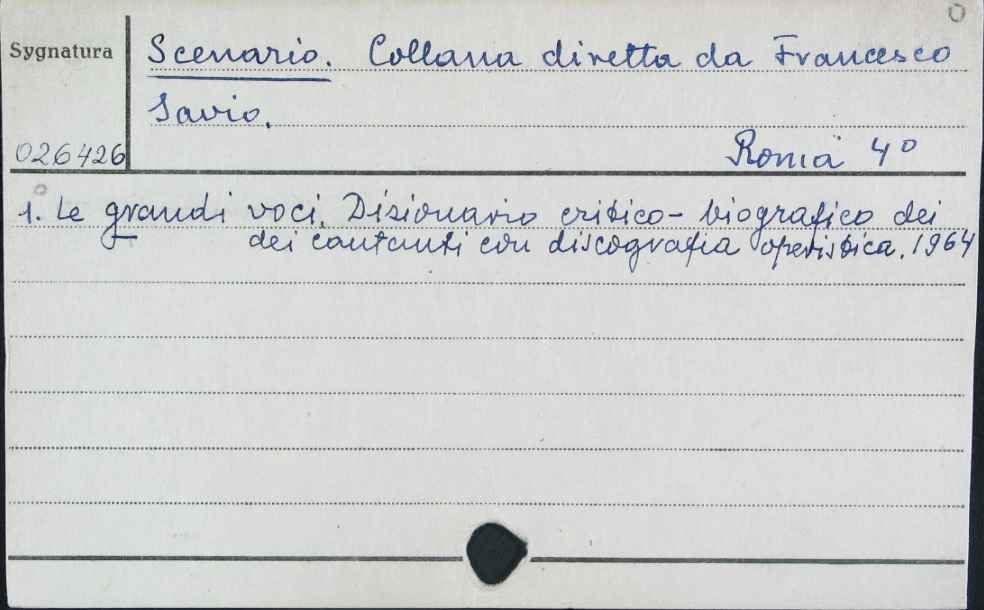 Sygnatura
Scenario. Collana diretta da Francesco
Savio.
026426
Roma 4°
1. Le grandi voci. Dizionario critico-biografico dei
dei cantanti con discografia operistica. 1964